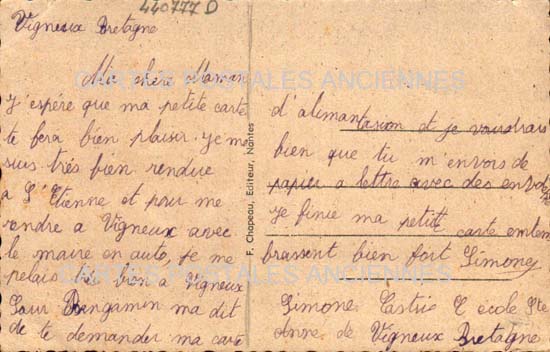 440777 D
Vigneux Bretagne
Ma chère Maman
J'espère que ma petite carte
te fera bien plaisir. Je me
suis très bien rendue
à St Etienne et pour me
rendre a Vigneux avec
le maire en auto, je me
pelais très bien a Vigneux
Sœur Bengamin ma dit
de te demander ma carte
d'alimantasion et je voudrais
bien que tu m'envois de
papier a lettre avec des envelo
Je finie ma petite carte en tem
brassent bien fort Simone
Simone Castric école Ste
Anne de Vigneux Bretagne
F. Chapeau, Editeur, Nantes
CARTES POSTALES ANCIENNES
CARTES POSTALES ANCIENNES